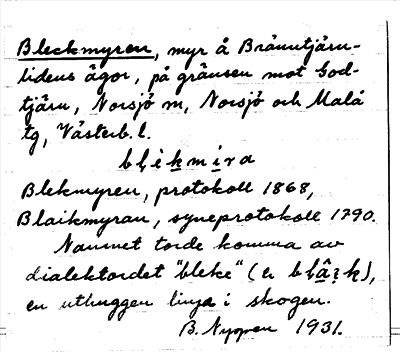 Bleckmyren, myr å Bränntjärn-
lidens ägor, på gränsen mot God-
tjärn, Norsjö sn, Norsjö och Malå
tg, Västerb. l.
bḷèk̬mi̬ra
Blekmyren, protokoll 1868,
Blaikmyran, syneprotokoll 1790.
Namnet torde komma av
dialektordet "bleke" (
en uthuggen linje i skogen.
B. Nygren 1931.